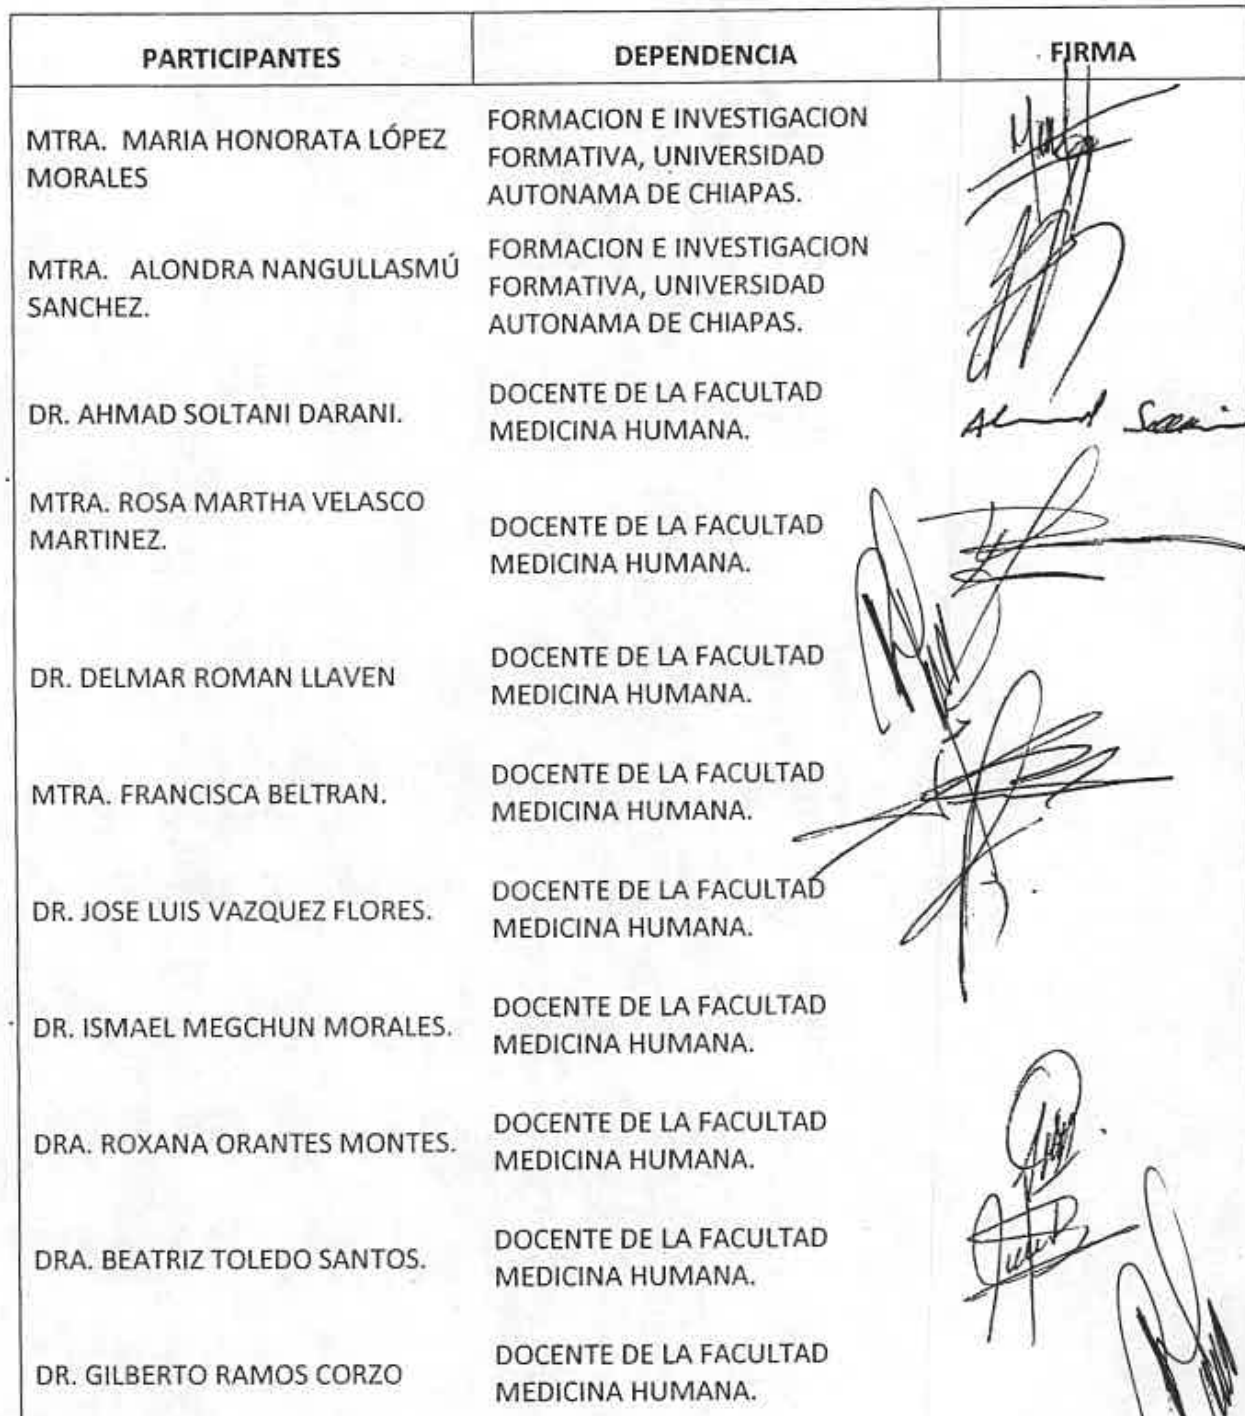 PARTICIPANTES DEPENDENCIA FIRMA
MTRA. MARIA HONORATA LÓPEZ
MORALES
FORMACION E INVESTIGACION
FORMATIVA, UNIVERSIDAD
AUTONAMA DE CHIAPAS.
MTRA. ALONDRA NANGULLASMÚ
SANCHEZ.
FORMACION E INVESTIGACION
FORMATIVA, UNIVERSIDAD
AUTONAMA DE CHIAPAS.
DR. AHMAD SOLTANI DARANI.
DOCENTE DE LA FACULTAD
MEDICINA HUMANA.
MTRA. ROSA MARTHA VELASCO
MARTINEZ.
DOCENTE DE LA FACULTAD
MEDICINA HUMANA.
DR. DELMAR ROMAN LLAVEN
DOCENTE DE LA FACULTAD
MEDICINA HUMANA.
MTRA. FRANCISCA BELTRAN.
DOCENTE DE LA FACULTAD
MEDICINA HUMANA.
DR. JOSE LUIS VAZQUEZ FLORES.
DOCENTE DE LA FACULTAD
MEDICINA HUMANA.
DR. ISMAEL MEGCHUN MORALES.
DOCENTE DE LA FACULTAD
MEDICINA HUMANA.
DRA. ROXANA ORANTES MONTES.
DOCENTE DE LA FACULTAD
MEDICINA HUMANA.
DRA. BEATRIZ TOLEDO SANTOS.
DOCENTE DE LA FACULTAD
MEDICINA HUMANA.
DR. GILBERTO RAMOS CORZO
DOCENTE DE LA FACULTAD
MEDICINA HUMANA.